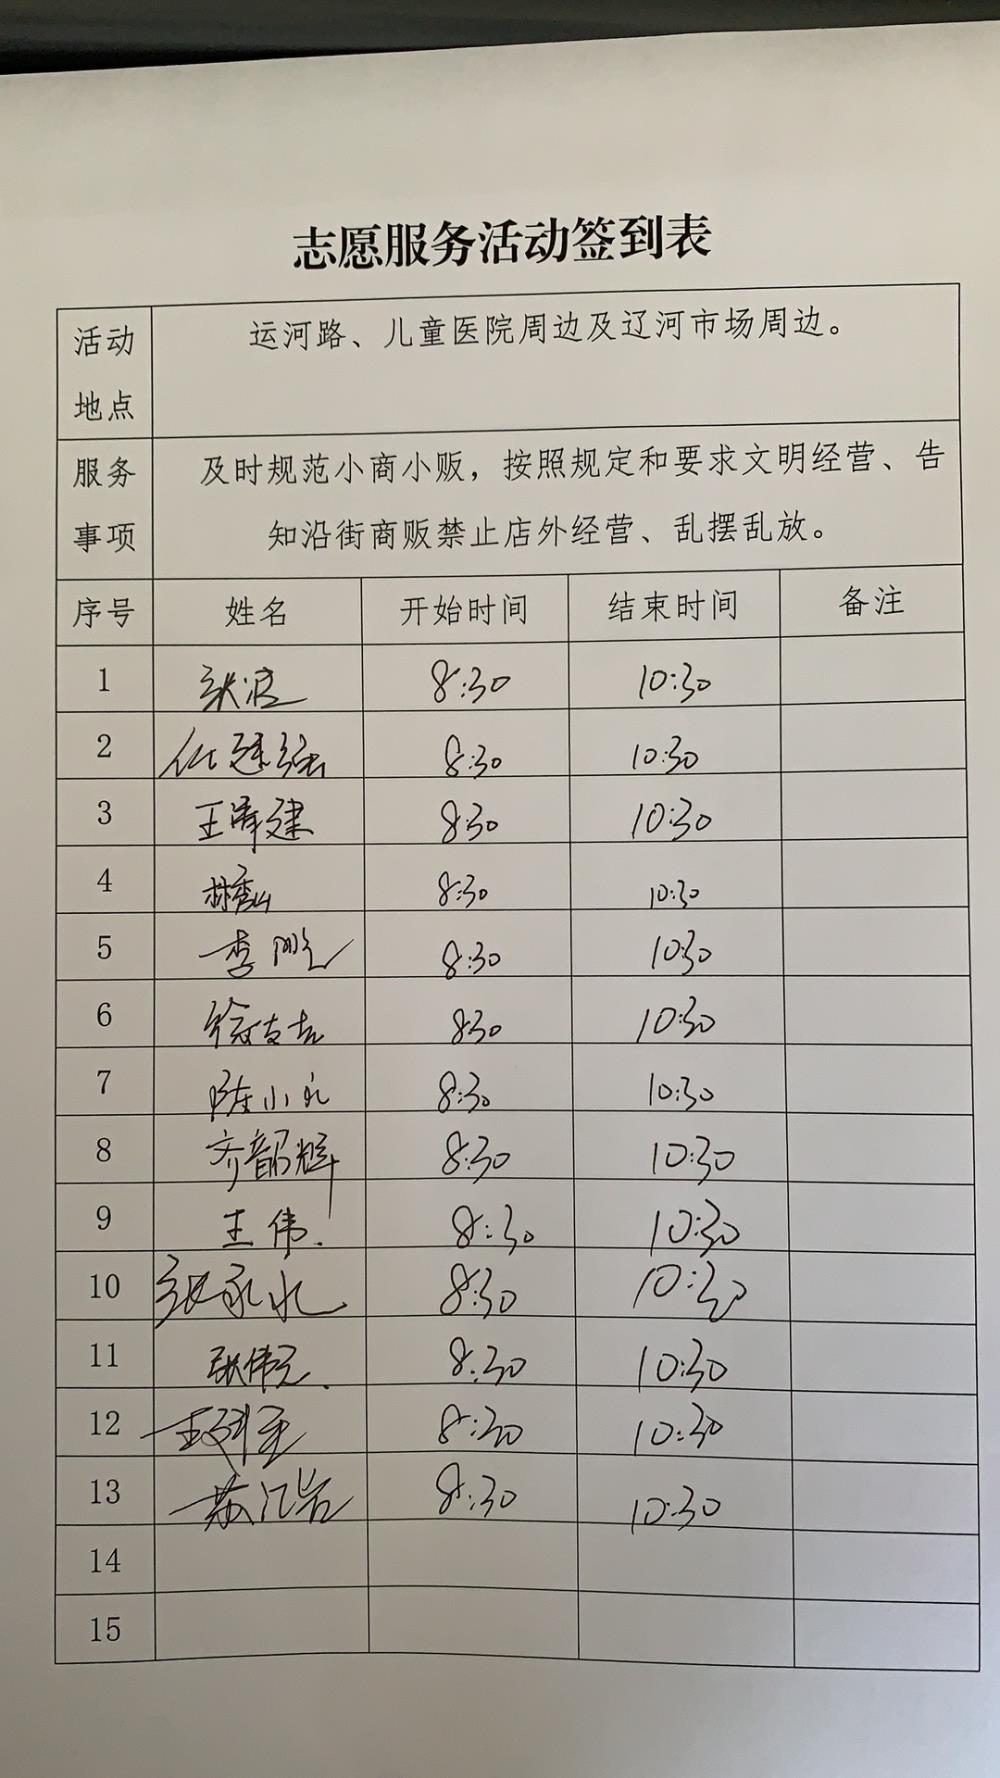 志愿服务活动签到表
活动地点 运河路、儿童医院周边及辽河市场周边。
服务事项 及时规范小商小贩，按照规定和要求文明经营、告
知沿街商贩禁止店外经营、乱摆乱放。
序号 姓名 开始时间 结束时间 备注
1 张波 8:30 10:30
2 8:30 10:30
3 王泽建 8:30 10:30
4 林秀山 8:30 10:30
5 李鹏 8:30 10:30
6 8:30 10:30
7 陈小礼 8:30 10:30
8 齐韶辉 8:30 10:30
9 王伟. 8:30 10:30
10 张永 8:30 10:30
11 张伟 8:30 10:30
12 王 8:30 10:30
13 苏 8:30 10:30
14
15